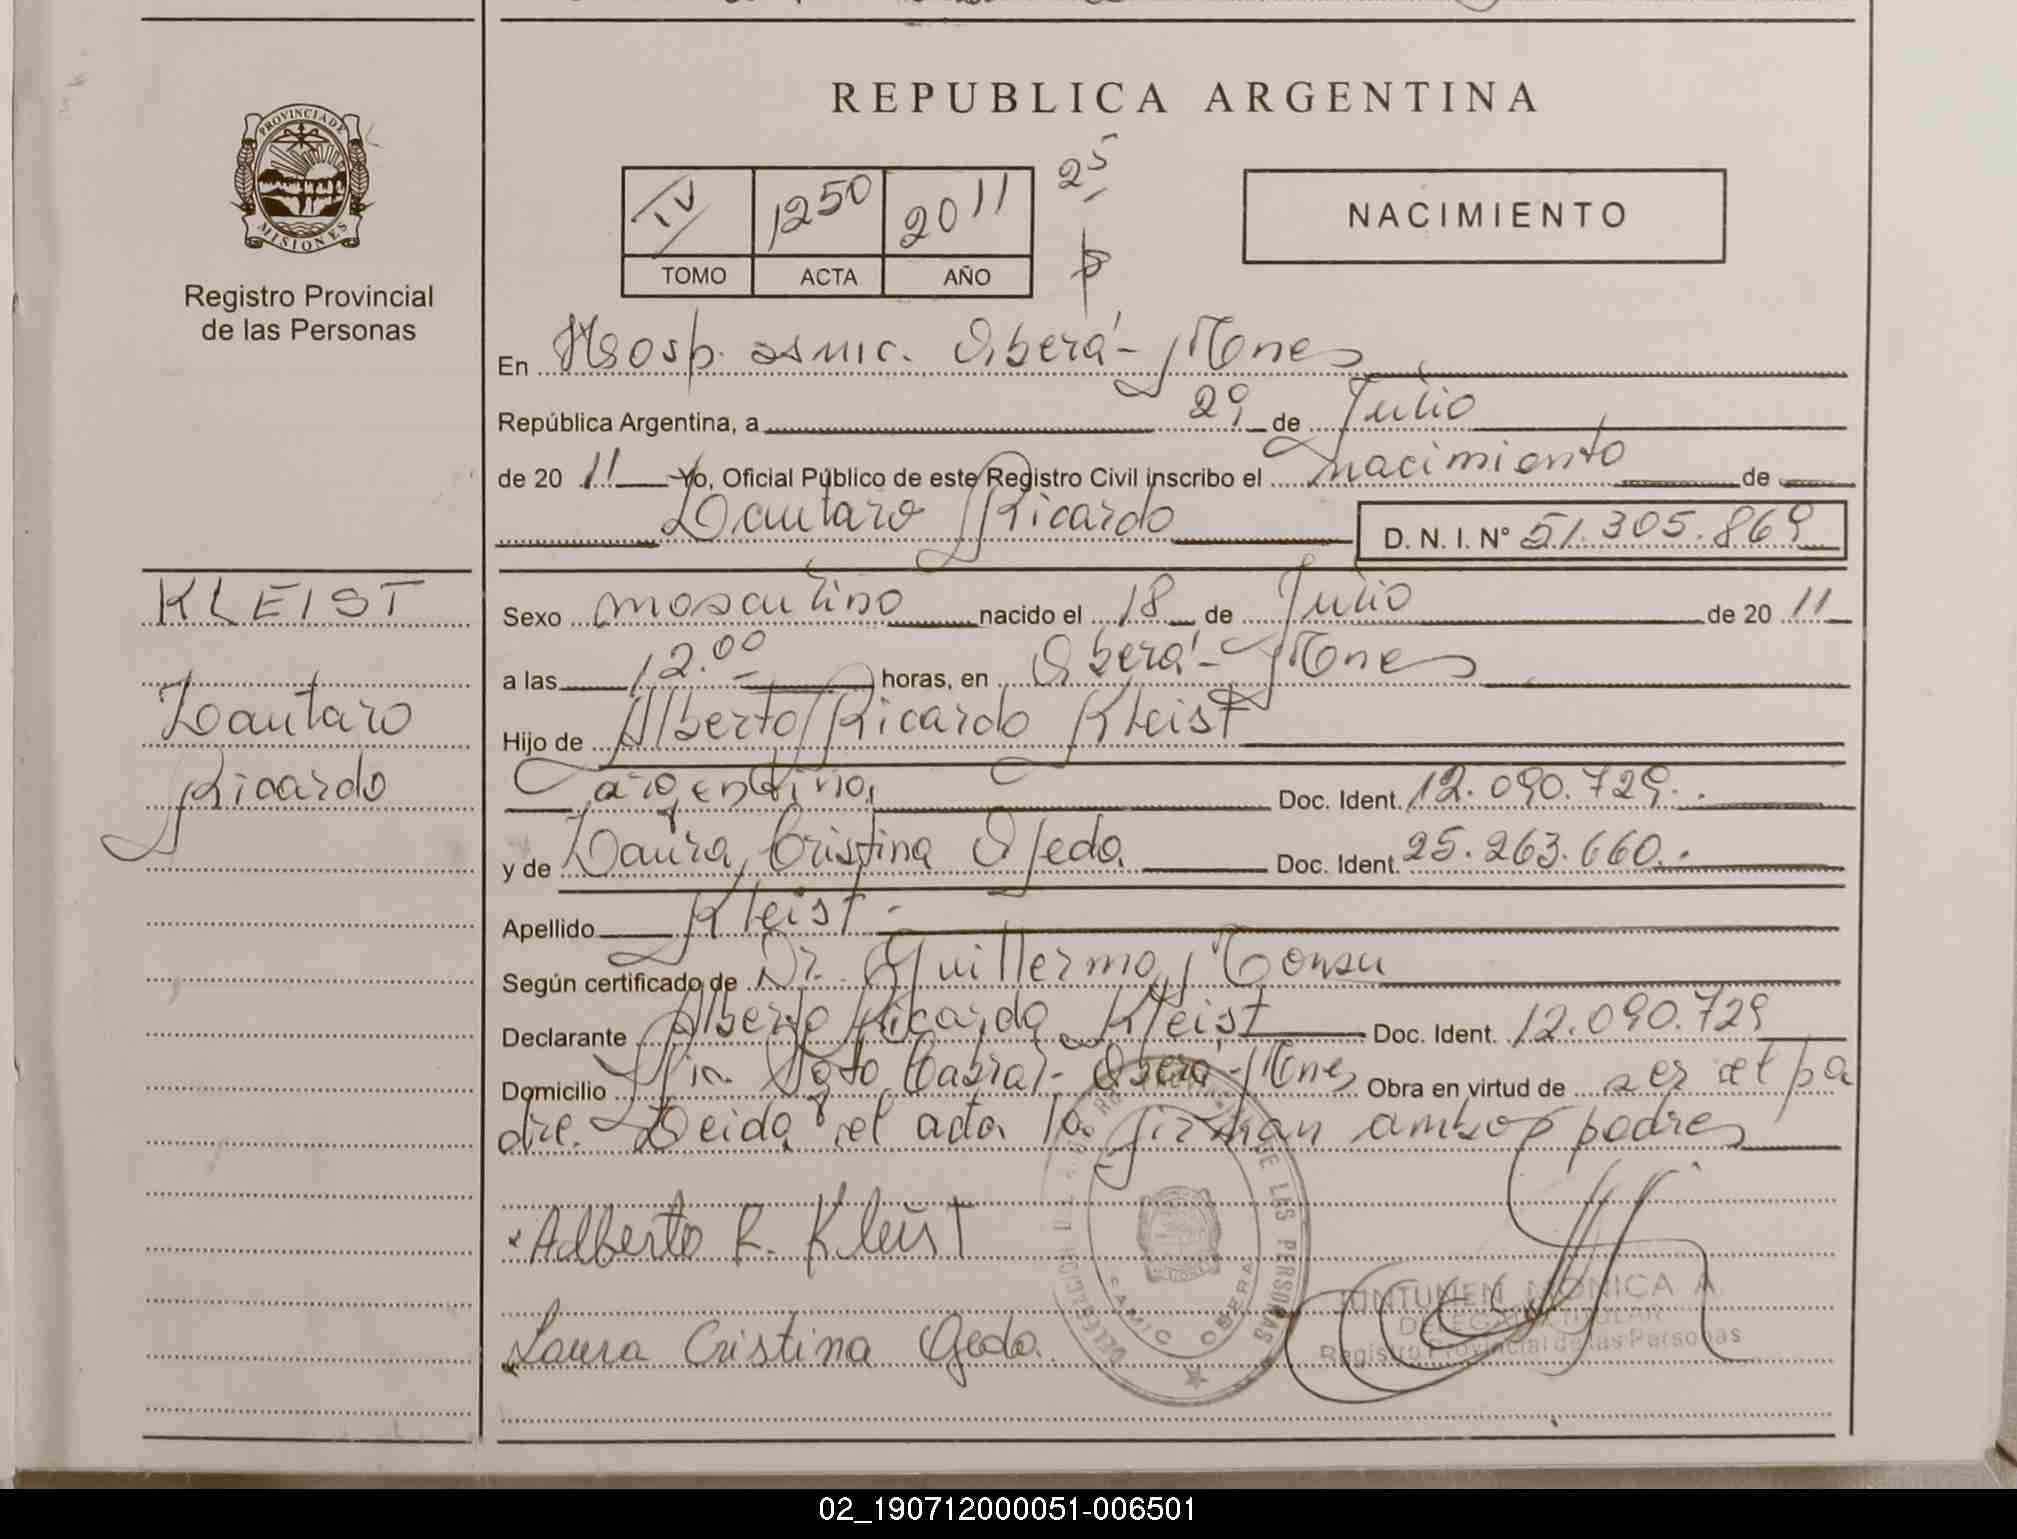 REPUBLICA ARGENTINA
PROVINCIA DE
MISIONES
Registro Provincial
de las Personas
IV 1250 2011 25
TOMO ACTA AÑO
NACIMIENTO
En Hosp. Samic. Oberá - Mnes
República Argentina, a 29 de Julio
de 20 11 Yo, Oficial Público de este Registro Civil inscribo el nacimiento de
Lautaro Ricardo D. N. I. Nº 51.305.869
KLEIST
Lautaro
Ricardo
Sexo masculino nacido el 18 de Julio de 20 11
a las 12.00 horas, en Oberá - Mnes
Hijo de Alberto Ricardo Kleist
argentino, Doc. Ident. 12.090.729.
y de Laura Cristina Ojeda Doc. Ident. 25.263.660.
Apellido Kleist -
Según certificado de Dr. Guillermo
Declarante Alberto Ricardo Kleist Doc. Ident. 12.090.729
Domicilio Cabral - Oberá - Mnes Obra en virtud de ser el pa
dre. Leida el acta la firman ambos padres
Alberto R. Kleist
Laura Cristina Ojeda.
DE LAS PERSONAS
SAMIC OBERA
MONICA A
Registro Provincial de las Personas
02_190712000051-006501